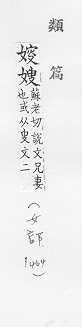 類篇
嫂㛮蘇老切說文兄妻
也或从叟文二
(女部
1464)